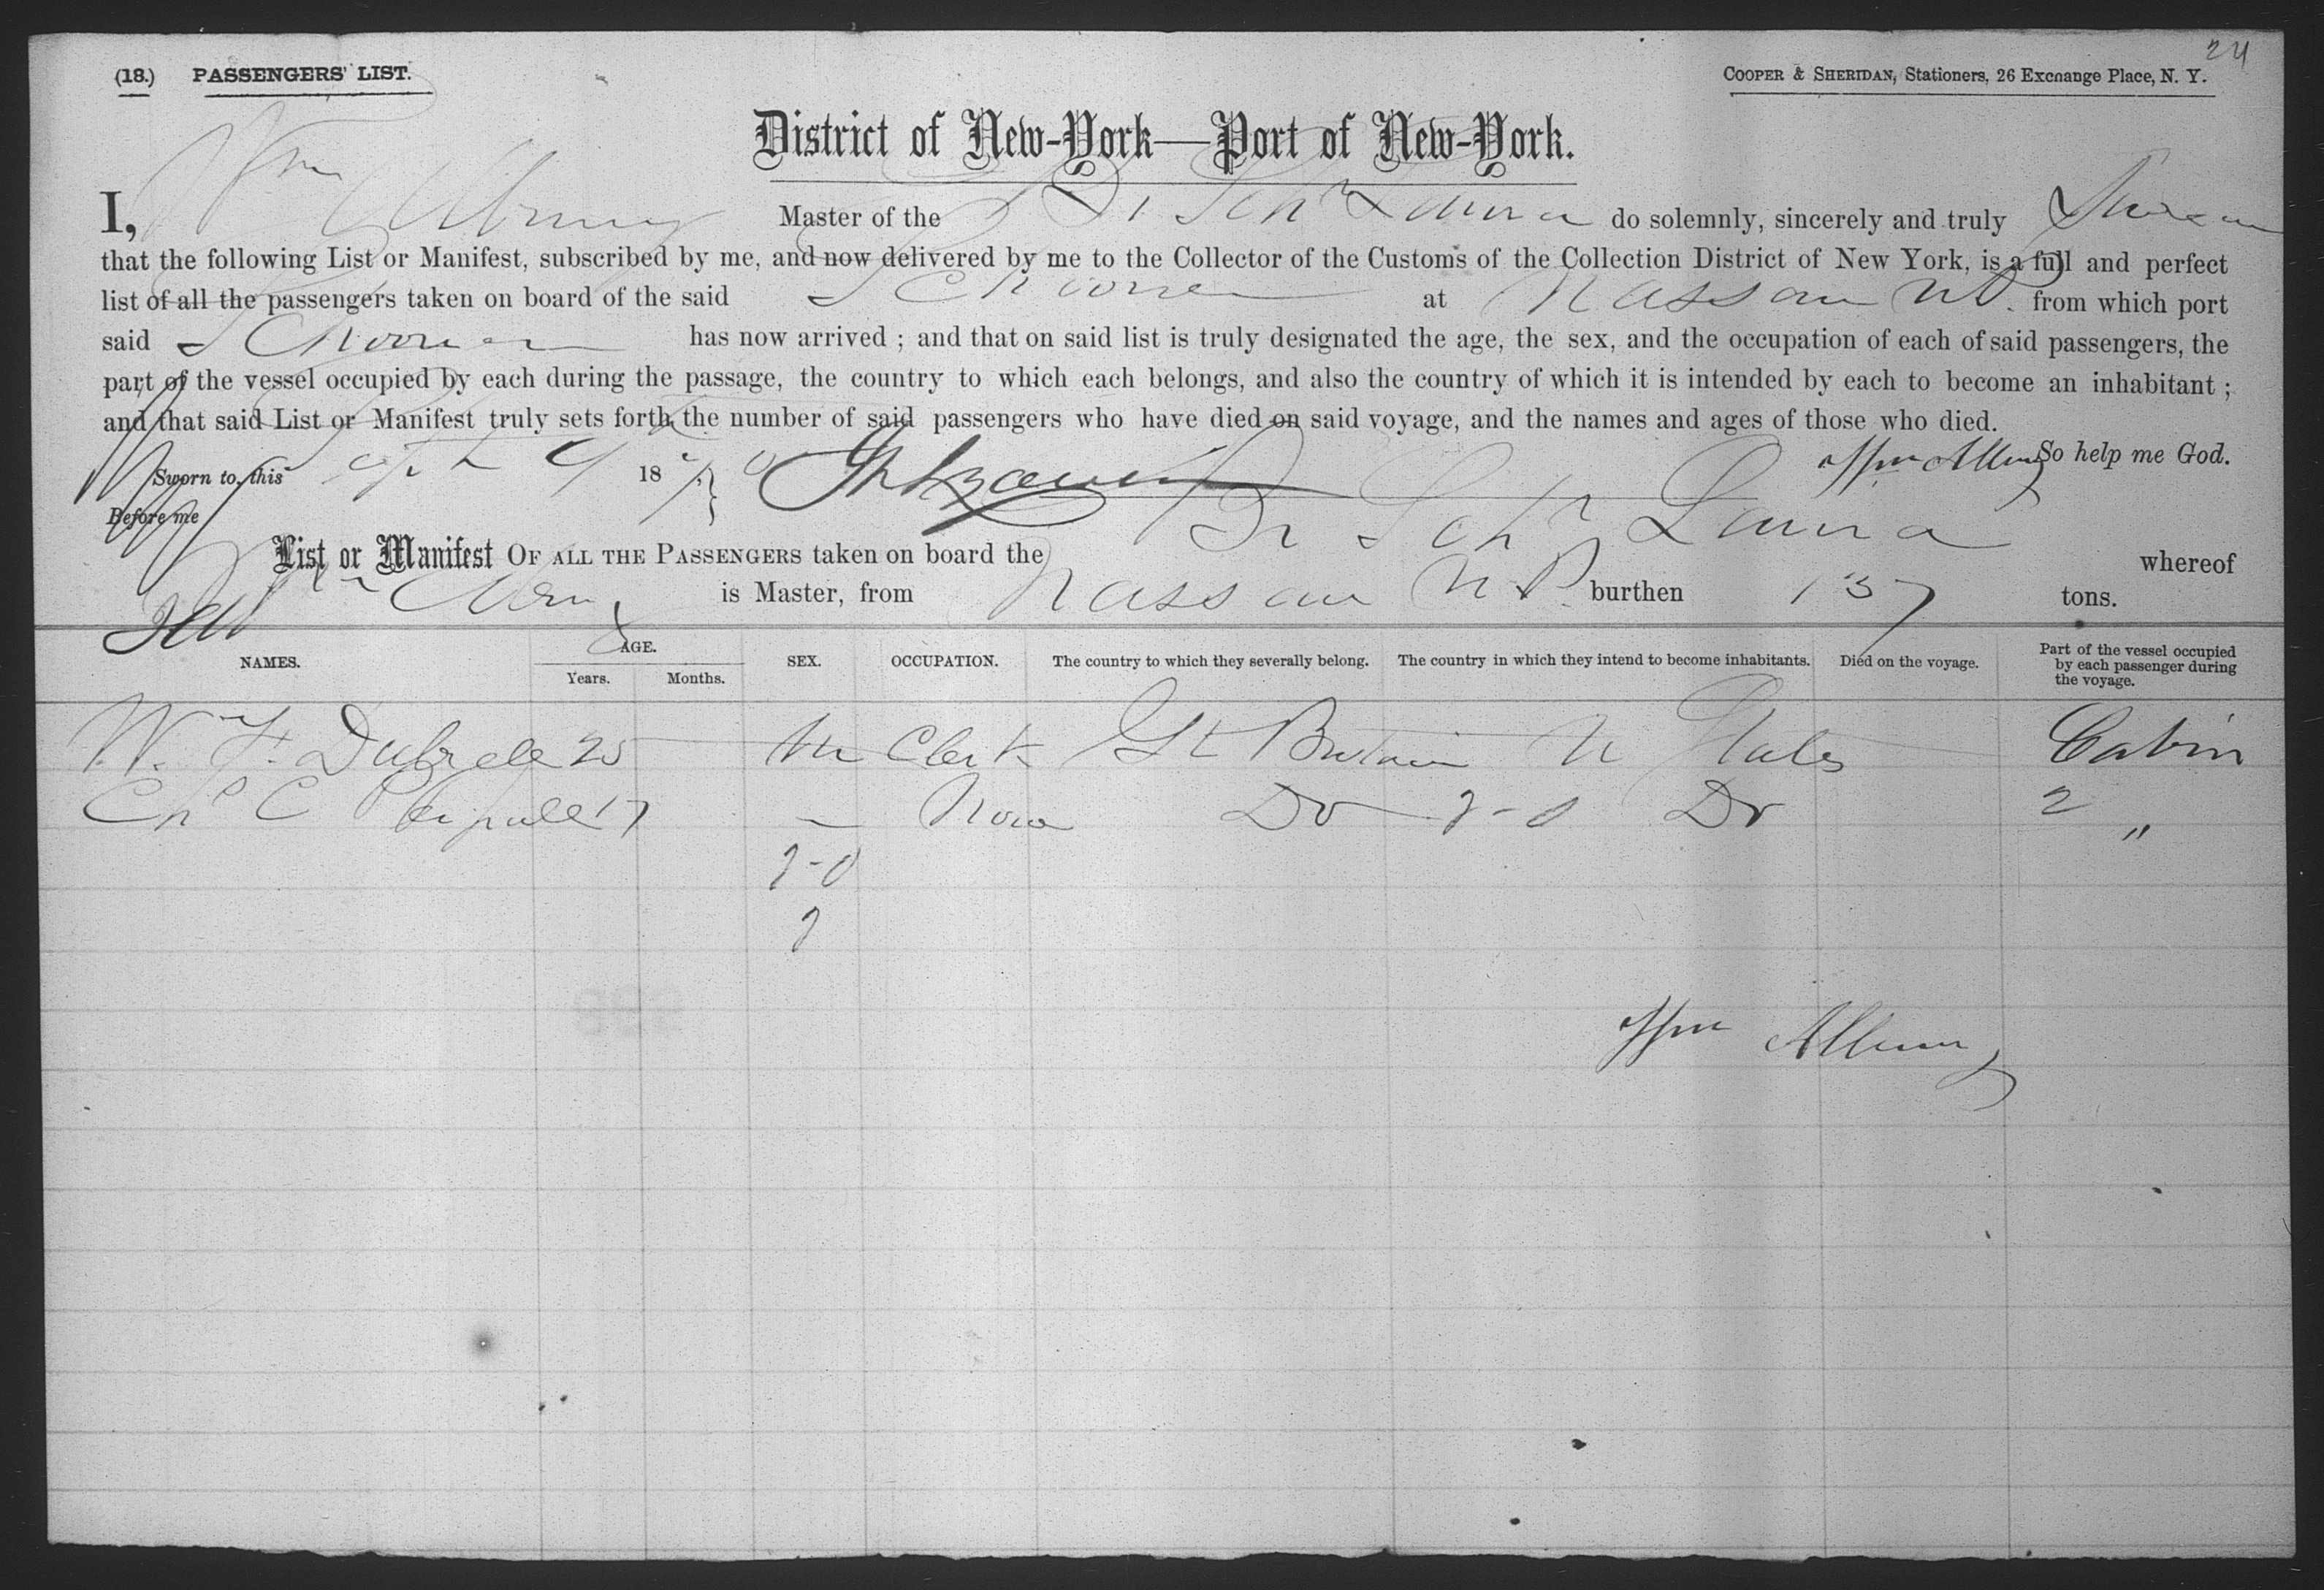 24
(18.) PASSENGERS' LIST. COOPER & SHERIDAN, Stationers, 26 Exchange Place, N. Y.
District of New-York—Port of New-York.
I, Wm Albury Master of the Br Schr Laura do solemnly, sincerely and truly Swear
that the following List or Manifest, subscribed by me, and now delivered by me to the Collector of the Customs of the Collection District of New York, is a full and perfect
list of all the passengers taken on board of the said Schooner at Nassau N.P. from which port
said Schooner has now arrived ; and that on said list is truly designated the age, the sex, and the occupation of each of said passengers, the
part of the vessel occupied by each during the passage, the country to which each belongs, and also the country of which it is intended by each to become an inhabitant ;
and that said List or Manifest truly sets forth the number of said passengers who have died on said voyage, and the names and ages of those who died.
Sworn to, this Sept 9 187 Wm Albury So help me God.
Before me
List or Manifest OF ALL THE PASSENGERS taken on board the Br Schr Laura whereof
Wm Albury is Master, from Nassau N.P. burthen 137 tons.
NAMES. AGE. Years. Months. SEX. OCCUPATION. The country to which they severally belong. The country in which they intend to become inhabitants. Died on the voyage. Part of the vessel occupied by each passenger during the voyage.
W. F. 25 M Clerk Gt Britain U States Cabin
Chs C 17 None Do Do 2 "
Wm Albury